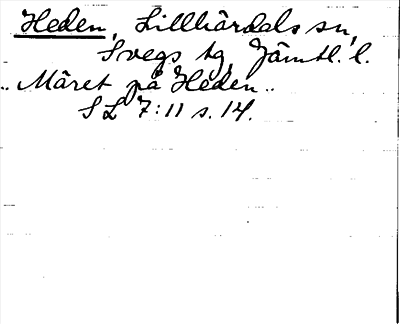 Heden, Lillhärdals sn,
Svegs tg, Jämtl. l.
.. Märet på Heden ..
S L 7:11 s. 14.